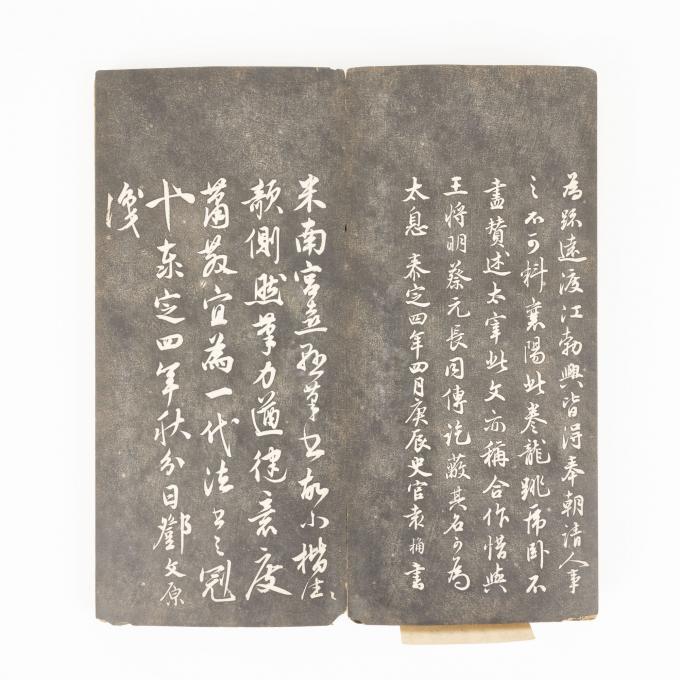 為疏遠渡江勃興皆得奉朝請人事
之不可料襄陽此卷龍跳虎卧不
盡贊述太宰此文亦稱合作惜與
王將明蔡元長同傳訖蔽其名可為
太息 泰定四年四月庚辰史官袁桷書
米南宮懸筆書故小楷
欹側然筆力遒健意度
蕭散宜為一代法書之冠
泰定四年秋分日鄧文原